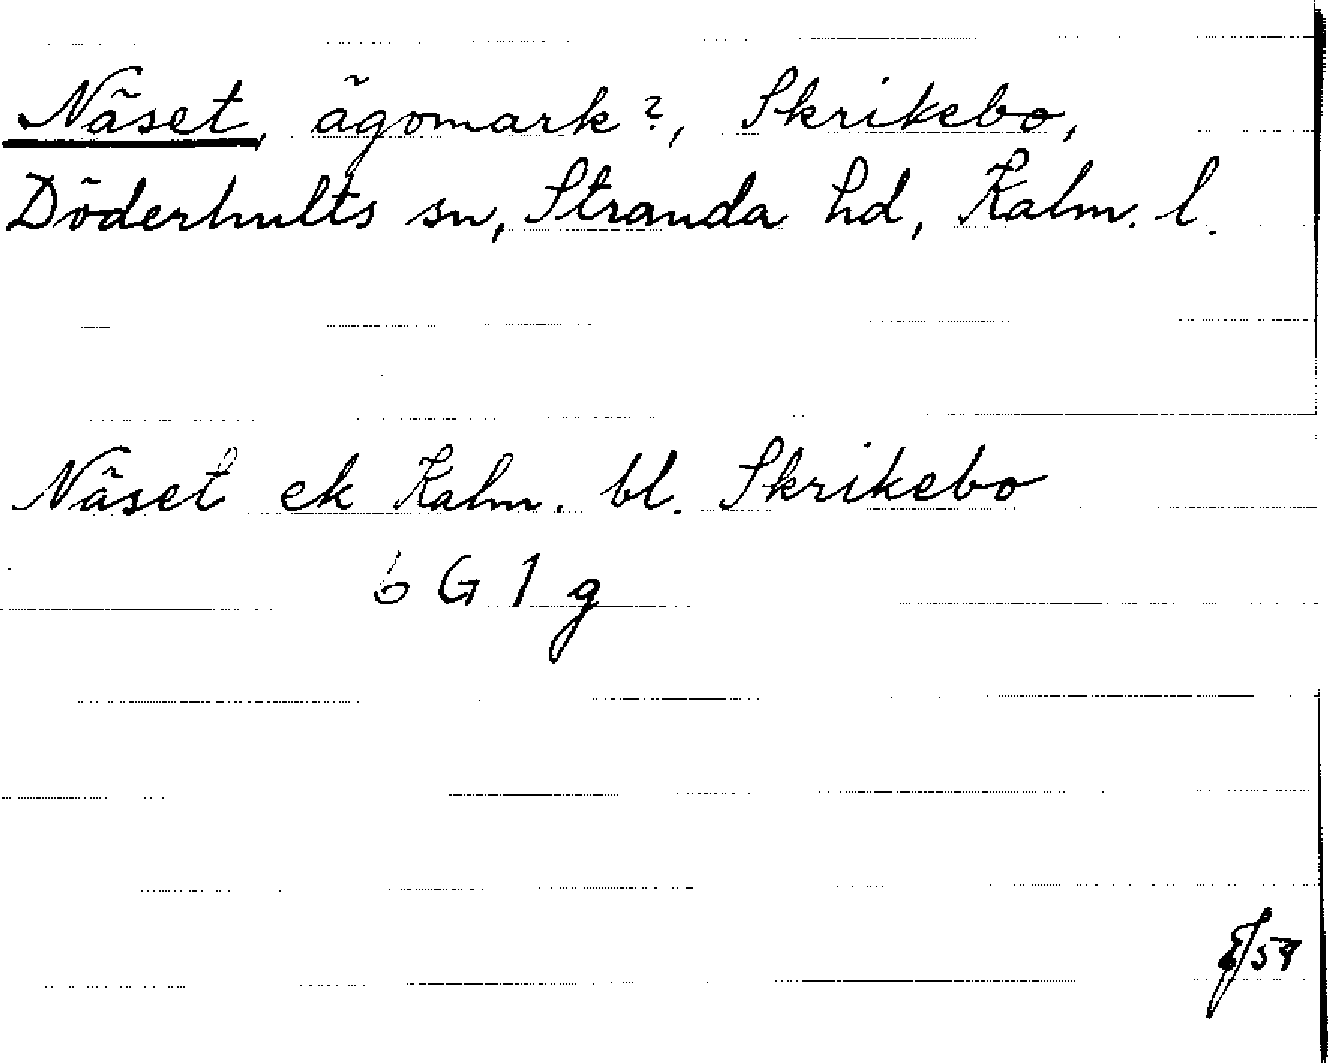 Näset, ägomark?, Skrikebo,
Döderhults sn, Stranda hd, Kalm. l.
Näset ek Kalm. bl. Skrikebo
6 G 1 g